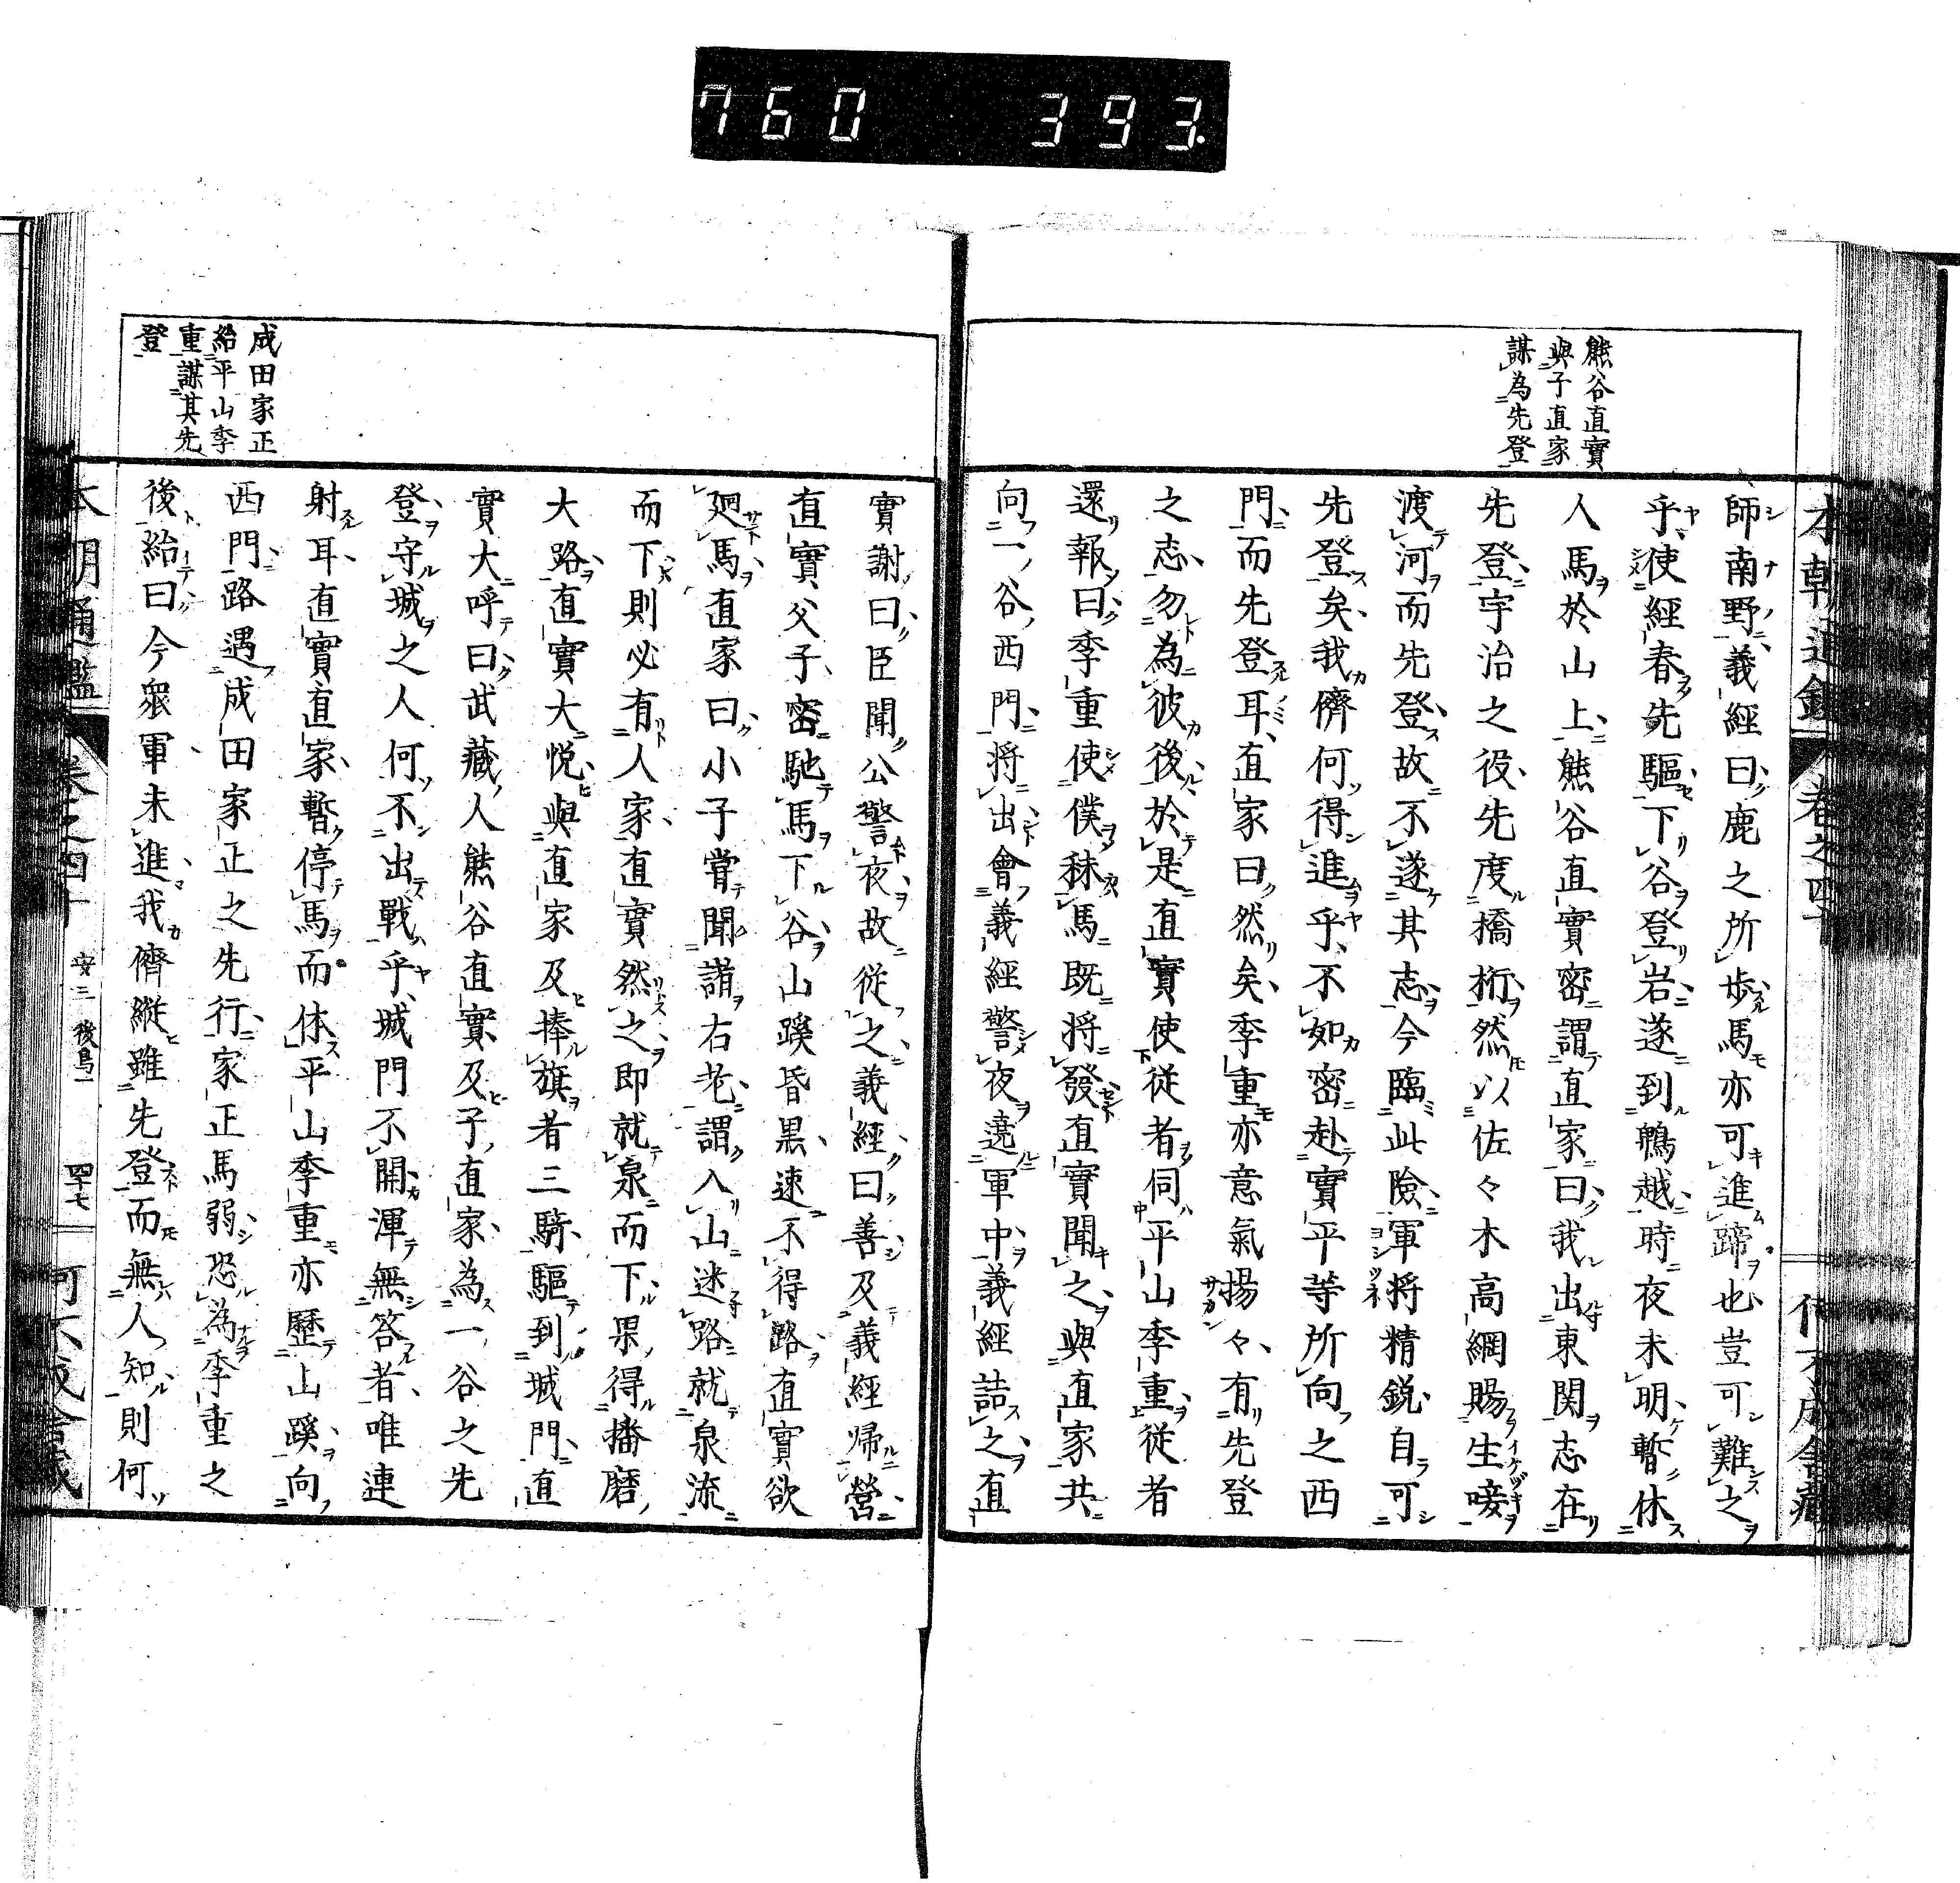 760 393.
熊谷直實
與子直家
謀為先登
師南野義經曰鹿之所歩馬亦可進蹄也豈可難之
乎使經春先驅下谷登岩遂到鵯越時夜未明暫休
人馬於山上熊谷直實密謂直家曰我出東関志在
先登宇治之役先度橋桁然以佐々木高綱賜生唼
渡河而先登故不遂其志今臨此險軍将精鋭自可
先登矣我儕何得進乎不如密赴實平等所向之西
門而先登耳直家曰然矣季重亦意氣揚々有先登
之志勿為彼後於是直實使従者伺平山季重従者
還報曰季重使僕秣馬既将發直實聞之與直家共
向一谷西門将出會義經警夜遶軍中義經詰之直
成田家正
給平山季
重謀其先
登
實謝曰臣聞公警夜故従之義經曰善及義經帰營
直實父子密馳馬下谷山蹊昏黒速不得路直實欲
廻馬直家曰小子甞聞諸右老謂入山迷路就泉流
而下則必有人家直實然之即就泉而下果得播磨
大路直實大悦與直家及捧旗者三騎驅到城門直
實大呼曰武藏人熊谷直實及子直家為一谷之先
登守城之人何不出戰乎城門不開渾無答者唯連
射耳直實直家暫停馬而休平山季重亦歴山蹊向
西門路遇成田家正之先行家正馬弱恐為季重之
後給曰今衆軍未進我儕縦雖先登而無人知則何
本朝通鑑 卷之四十 安二 後鳥一 四十七